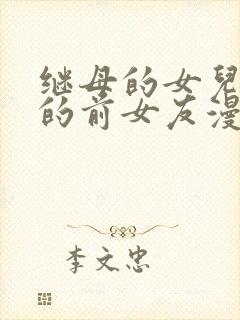 继母的女兒
的前女友漫
李文忠